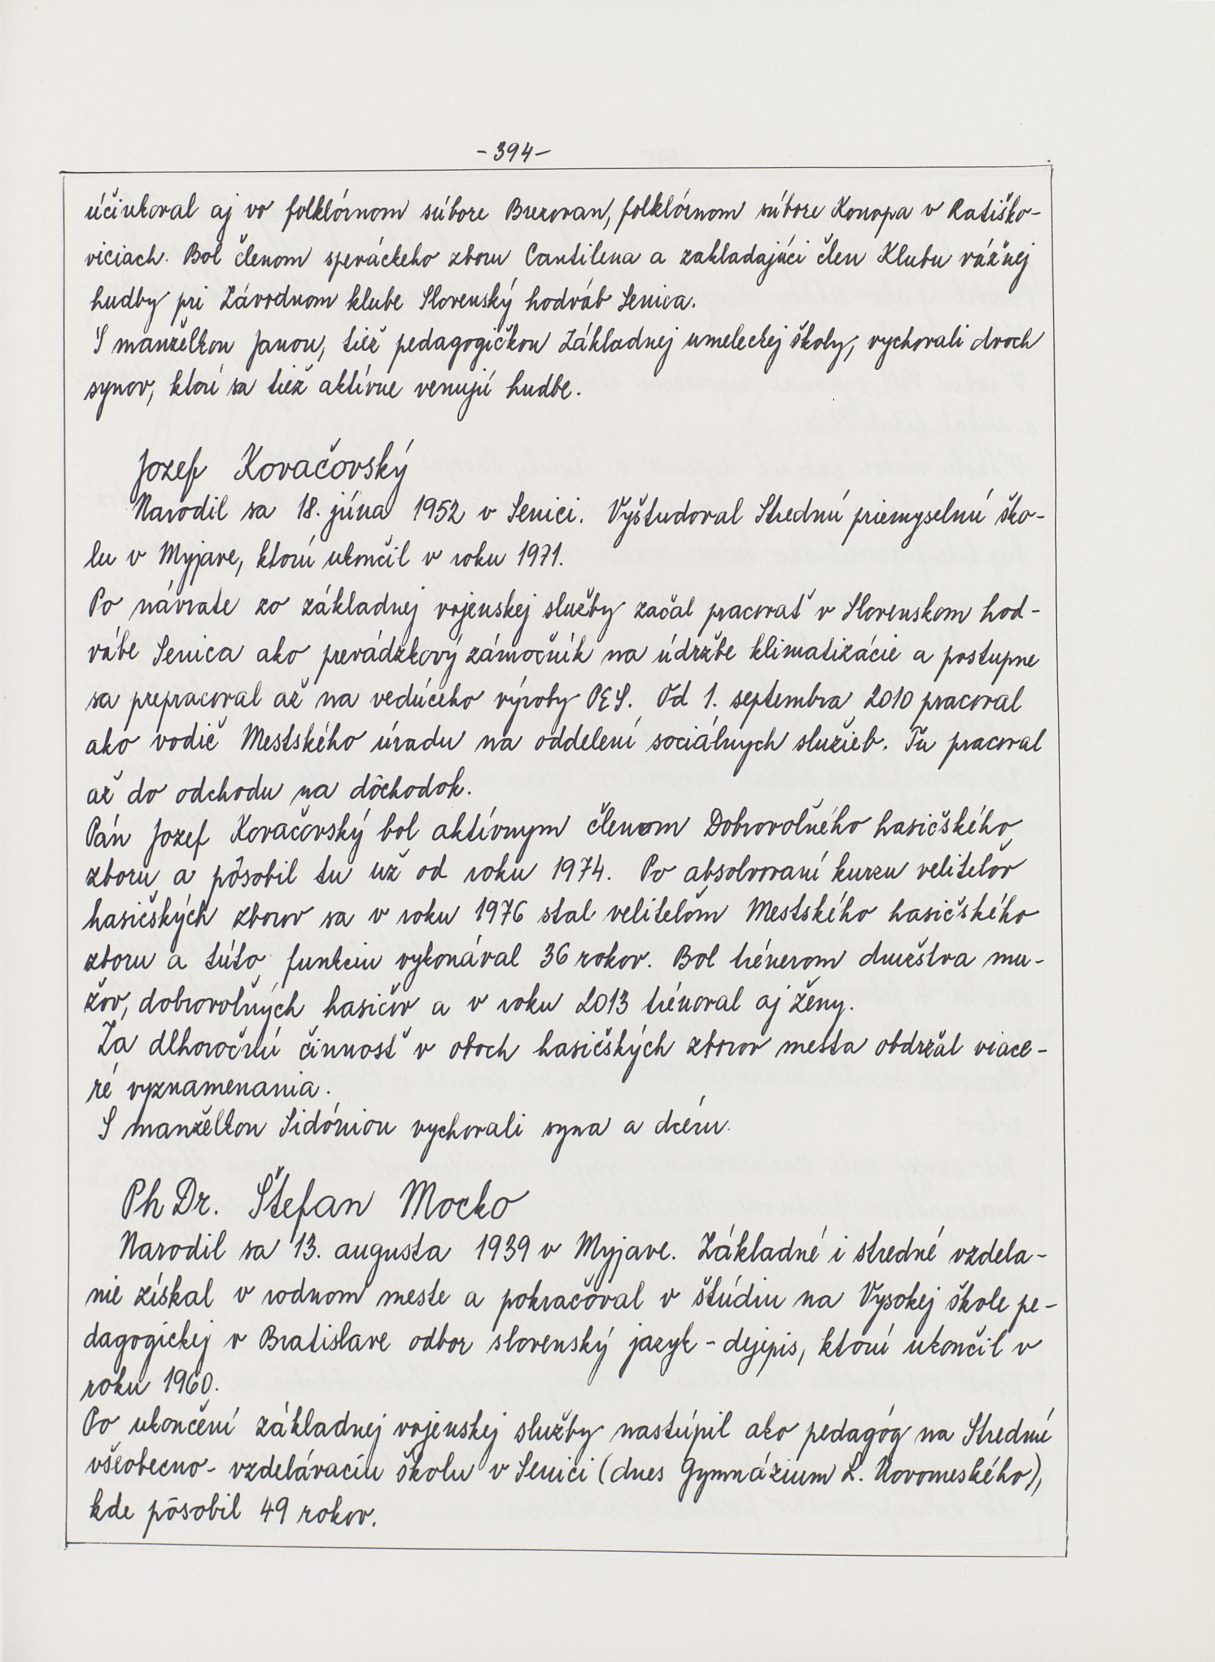 -394-
účinkoval aj vo folklórnom súbore Brezovan, folklórnom súbore Konopa v Ratiško-
viciach. Bol členom speváckeho zboru Cantilena a zakladajúci člen Klubu vážnej
hudby pri Závodnom klube Slovenský hodváb Senica.
S manželkou Janou, tiež pedagogičkou Základnej umeleckej školy, vychovali dvoch
synov, ktorí sa tiež aktívne venujú hudbe.
Jozef Kovačovský
Narodil sa 18. júna 1952 v Senici. Vyštudoval Strednú priemyselnú ško-
lu v Myjave, ktorú ukončil v roku 1971.
Po návrate zo základnej vojenskej služby začal pracovať v Slovenskom hod-
vábe Senica ako prevádzkový zámočník na údržbe klimatizácie a postupne
sa prepracoval až na vedúceho výroby PES. Od 1. septembra 2010 pracoval
ako vodič Mestského úradu na oddelení sociálnych služieb. Tu pracoval
až do odchodu na dôchodok.
Pán Jozef Kovačovský bol aktívnym členom Dobrovoľného hasičského
zboru a pôsobil tu už od roku 1974. Po absolvovaní kurzu veliteľov
hasičských zborov sa v roku 1976 stal veliteľom Mestského hasičského
zboru a túto funkciu vykonával 36 rokov. Bol trénerom družstva mu-
žov, dobrovoľných hasičov a v roku 2013 trénoval aj ženy.
Za dlhoročnú činnosť v oboch hasičských zborov mesta obdržal viace-
ré vyznamenania.
S manželkou Sidóniou vychovali syna a dcéru.
PhDr. Štefan Mocko
Narodil sa 13. augusta 1939 v Myjave. Základné i stredné vzdela-
nie získal v rodnom meste a pokračoval v štúdiu na Vysokej škole pe-
dagogickej v Bratislave odbor slovenský jazyk - dejepis, ktorú ukončil v
roku 1960.
Po ukončení základnej vojenskej služby nastúpil ako pedagóg na Strednú
všeobecno- vzdelávaciu školu v Senici (dnes Gymnázium L. Novomeského),
kde pôsobil 49 rokov.